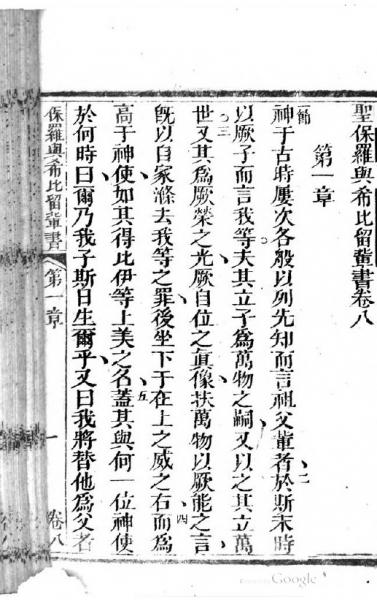 聖保羅與希比留輩書卷八
第一章
一節
神于古時屢次各般以列先知而言祖父輩者於斯末時
二
以厥子而言我等夫其立子為萬物之嗣又以之其立萬
三
世又其為厥榮之光厥自位之真像扶萬物以厥能之言
既以自家滌去我等之罪後坐下于在上之威之右而為
四
高于神使如其得比伊等上美之名蓋其與何一位神使
五
於何時曰爾乃我子斯日生爾乎又曰我將替他為父者
保羅與希比留輩書 第一章 一 卷八
Google